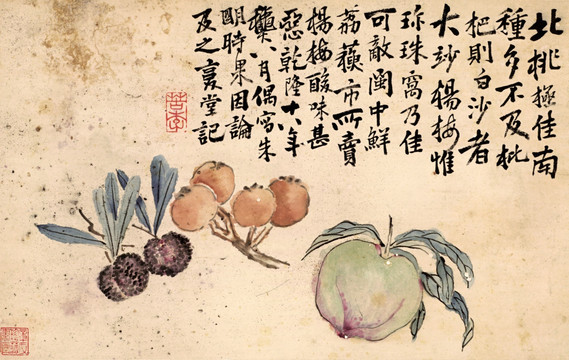 北桃極佳南
種多不及枇
杷則白沙者
大妙楊梅惟
珍珠窩乃佳
可敵閩中鮮
荔蘋市所賣
楊梅酸味甚
惡乾隆十八年
八月偶寫朱
明時果因論
及之夏堂記